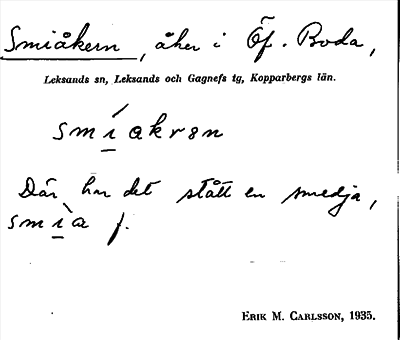 Smiåkern, åker i Öf. Boda,
Leksands sn, Leksands och Gagnefs tg, Kopparbergs län.
smí̱akrən
Där har det stått en smedja,
smì̱a f.
ERIK M. CARLSSON, 1935.